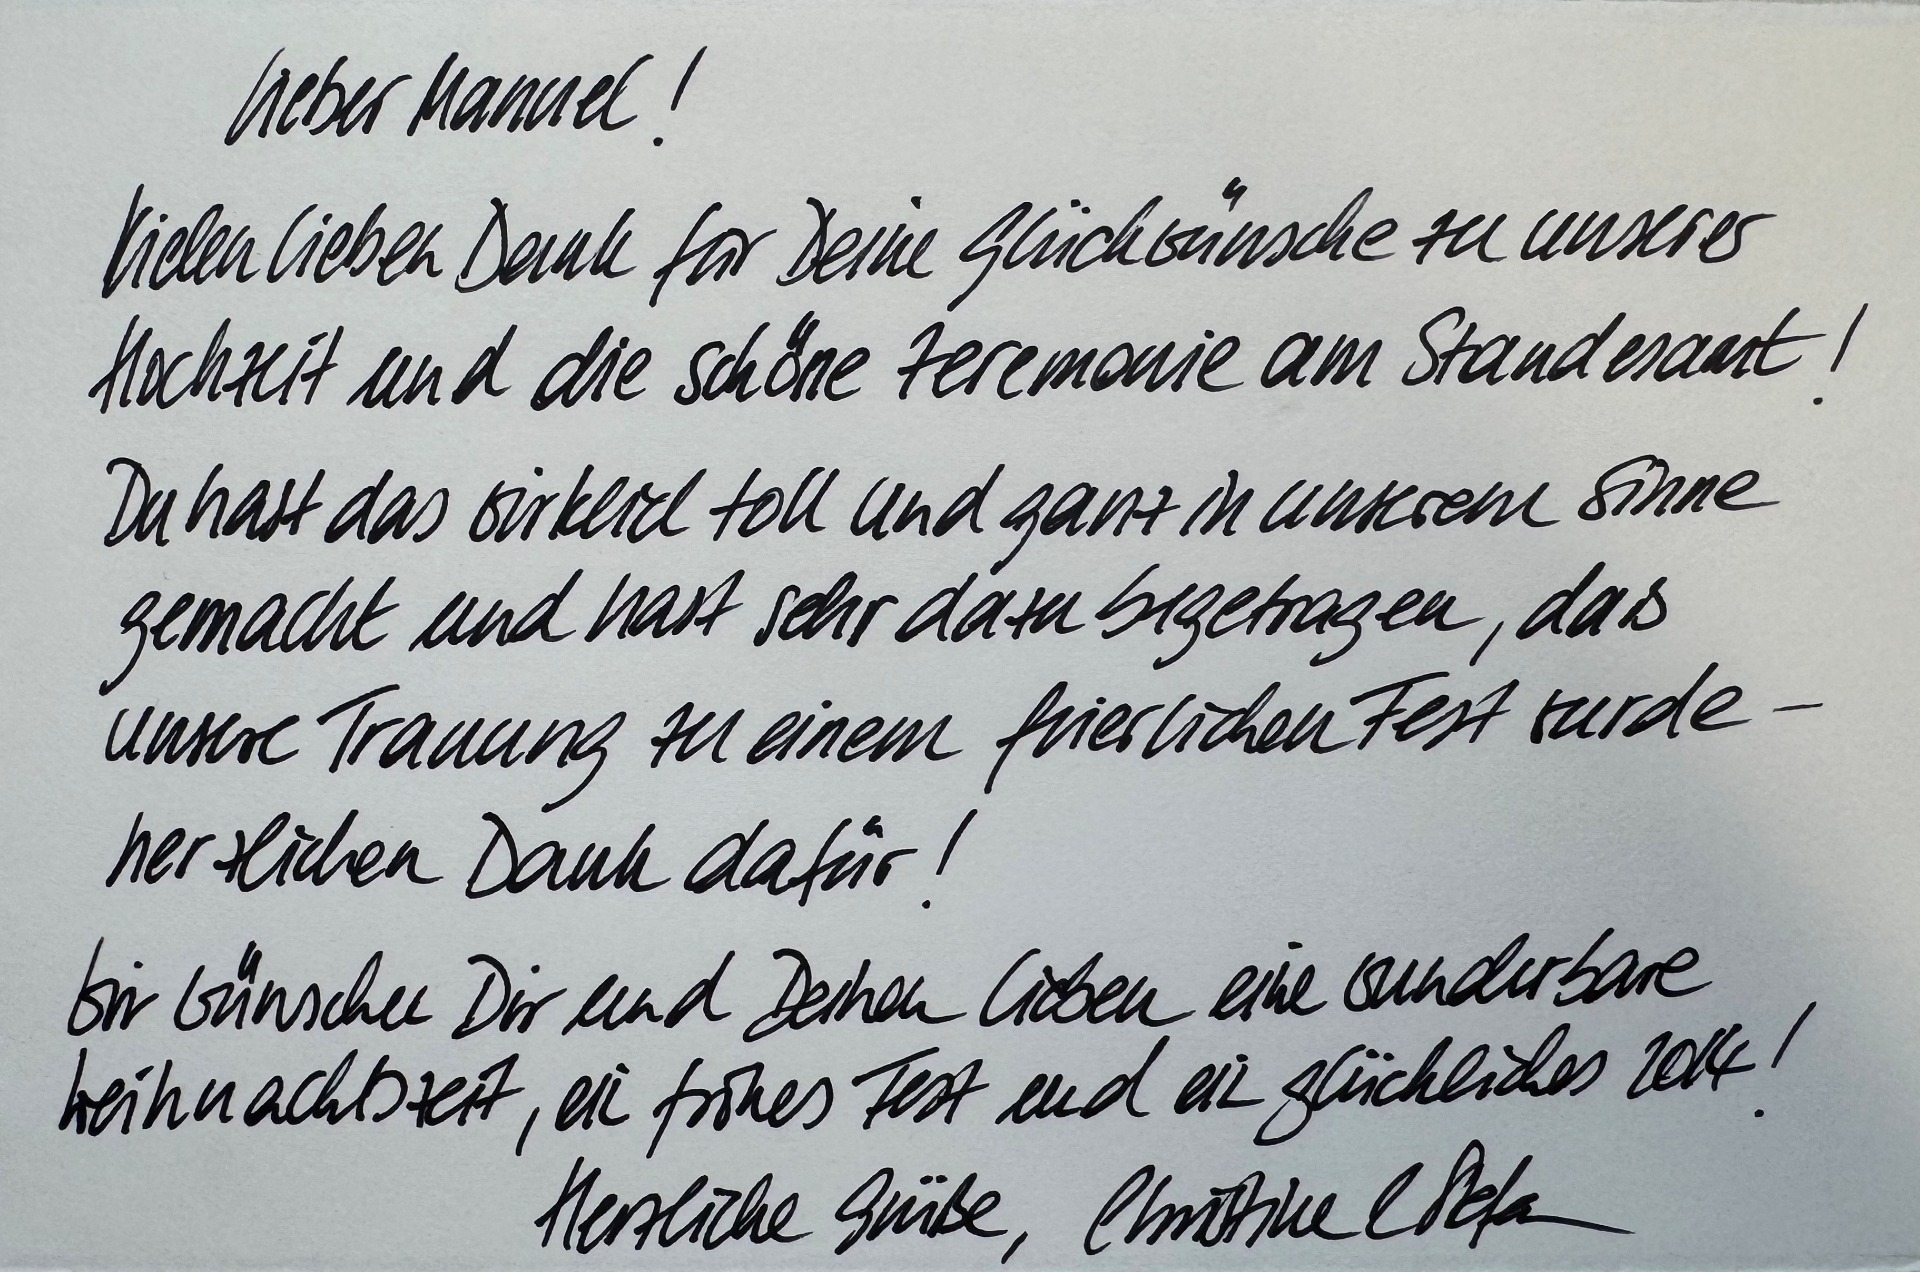 Lieber Manuel!
Vielen lieben Dank für Deine Glückwünsche zu unserer
Hochzeit und die schöne Zeremonie am Standesamt!
Du hast das wirklich toll und ganz in unserem Sinne
gemacht und hast sehr dazu beigetragen, dass
unsere Trauung zu einem feierlichen Fest wurde –
herzlichen Dank dafür!
Wir wünschen Dir und Deinen Lieben eine wunderbare
Weihnachtszeit, ein frohes Fest und ein glückliches 2014!
Herzliche Grüße, Christine & Stefan